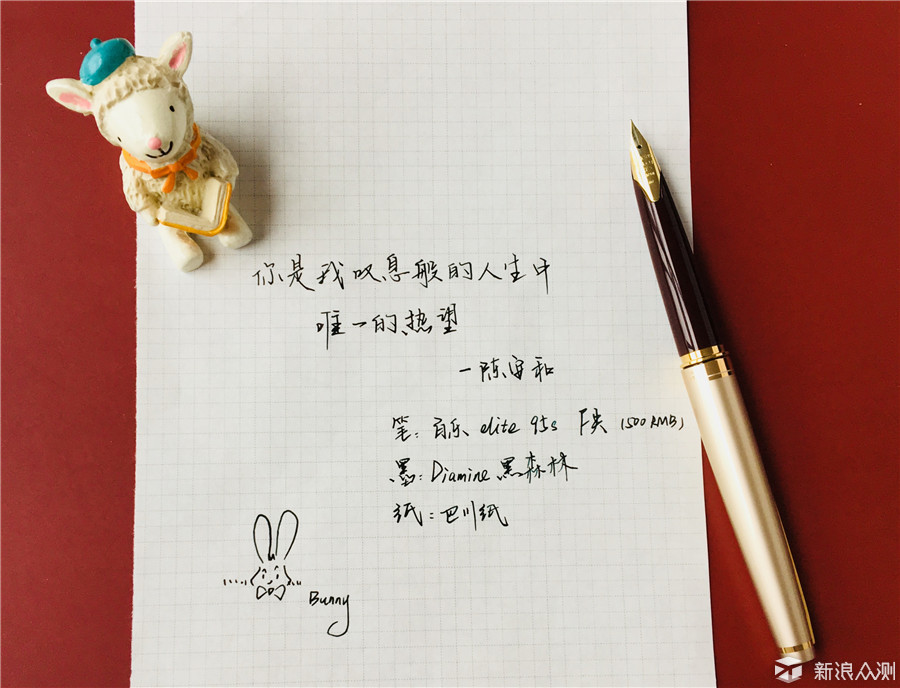 你是我叹息般的人生中
唯一的热望
一陈安和
笔:百乐 elite 95s F尖 (1500 RMB)
墨:Diamine 黑森林
纸:巴川纸
Bunny
新浪众测